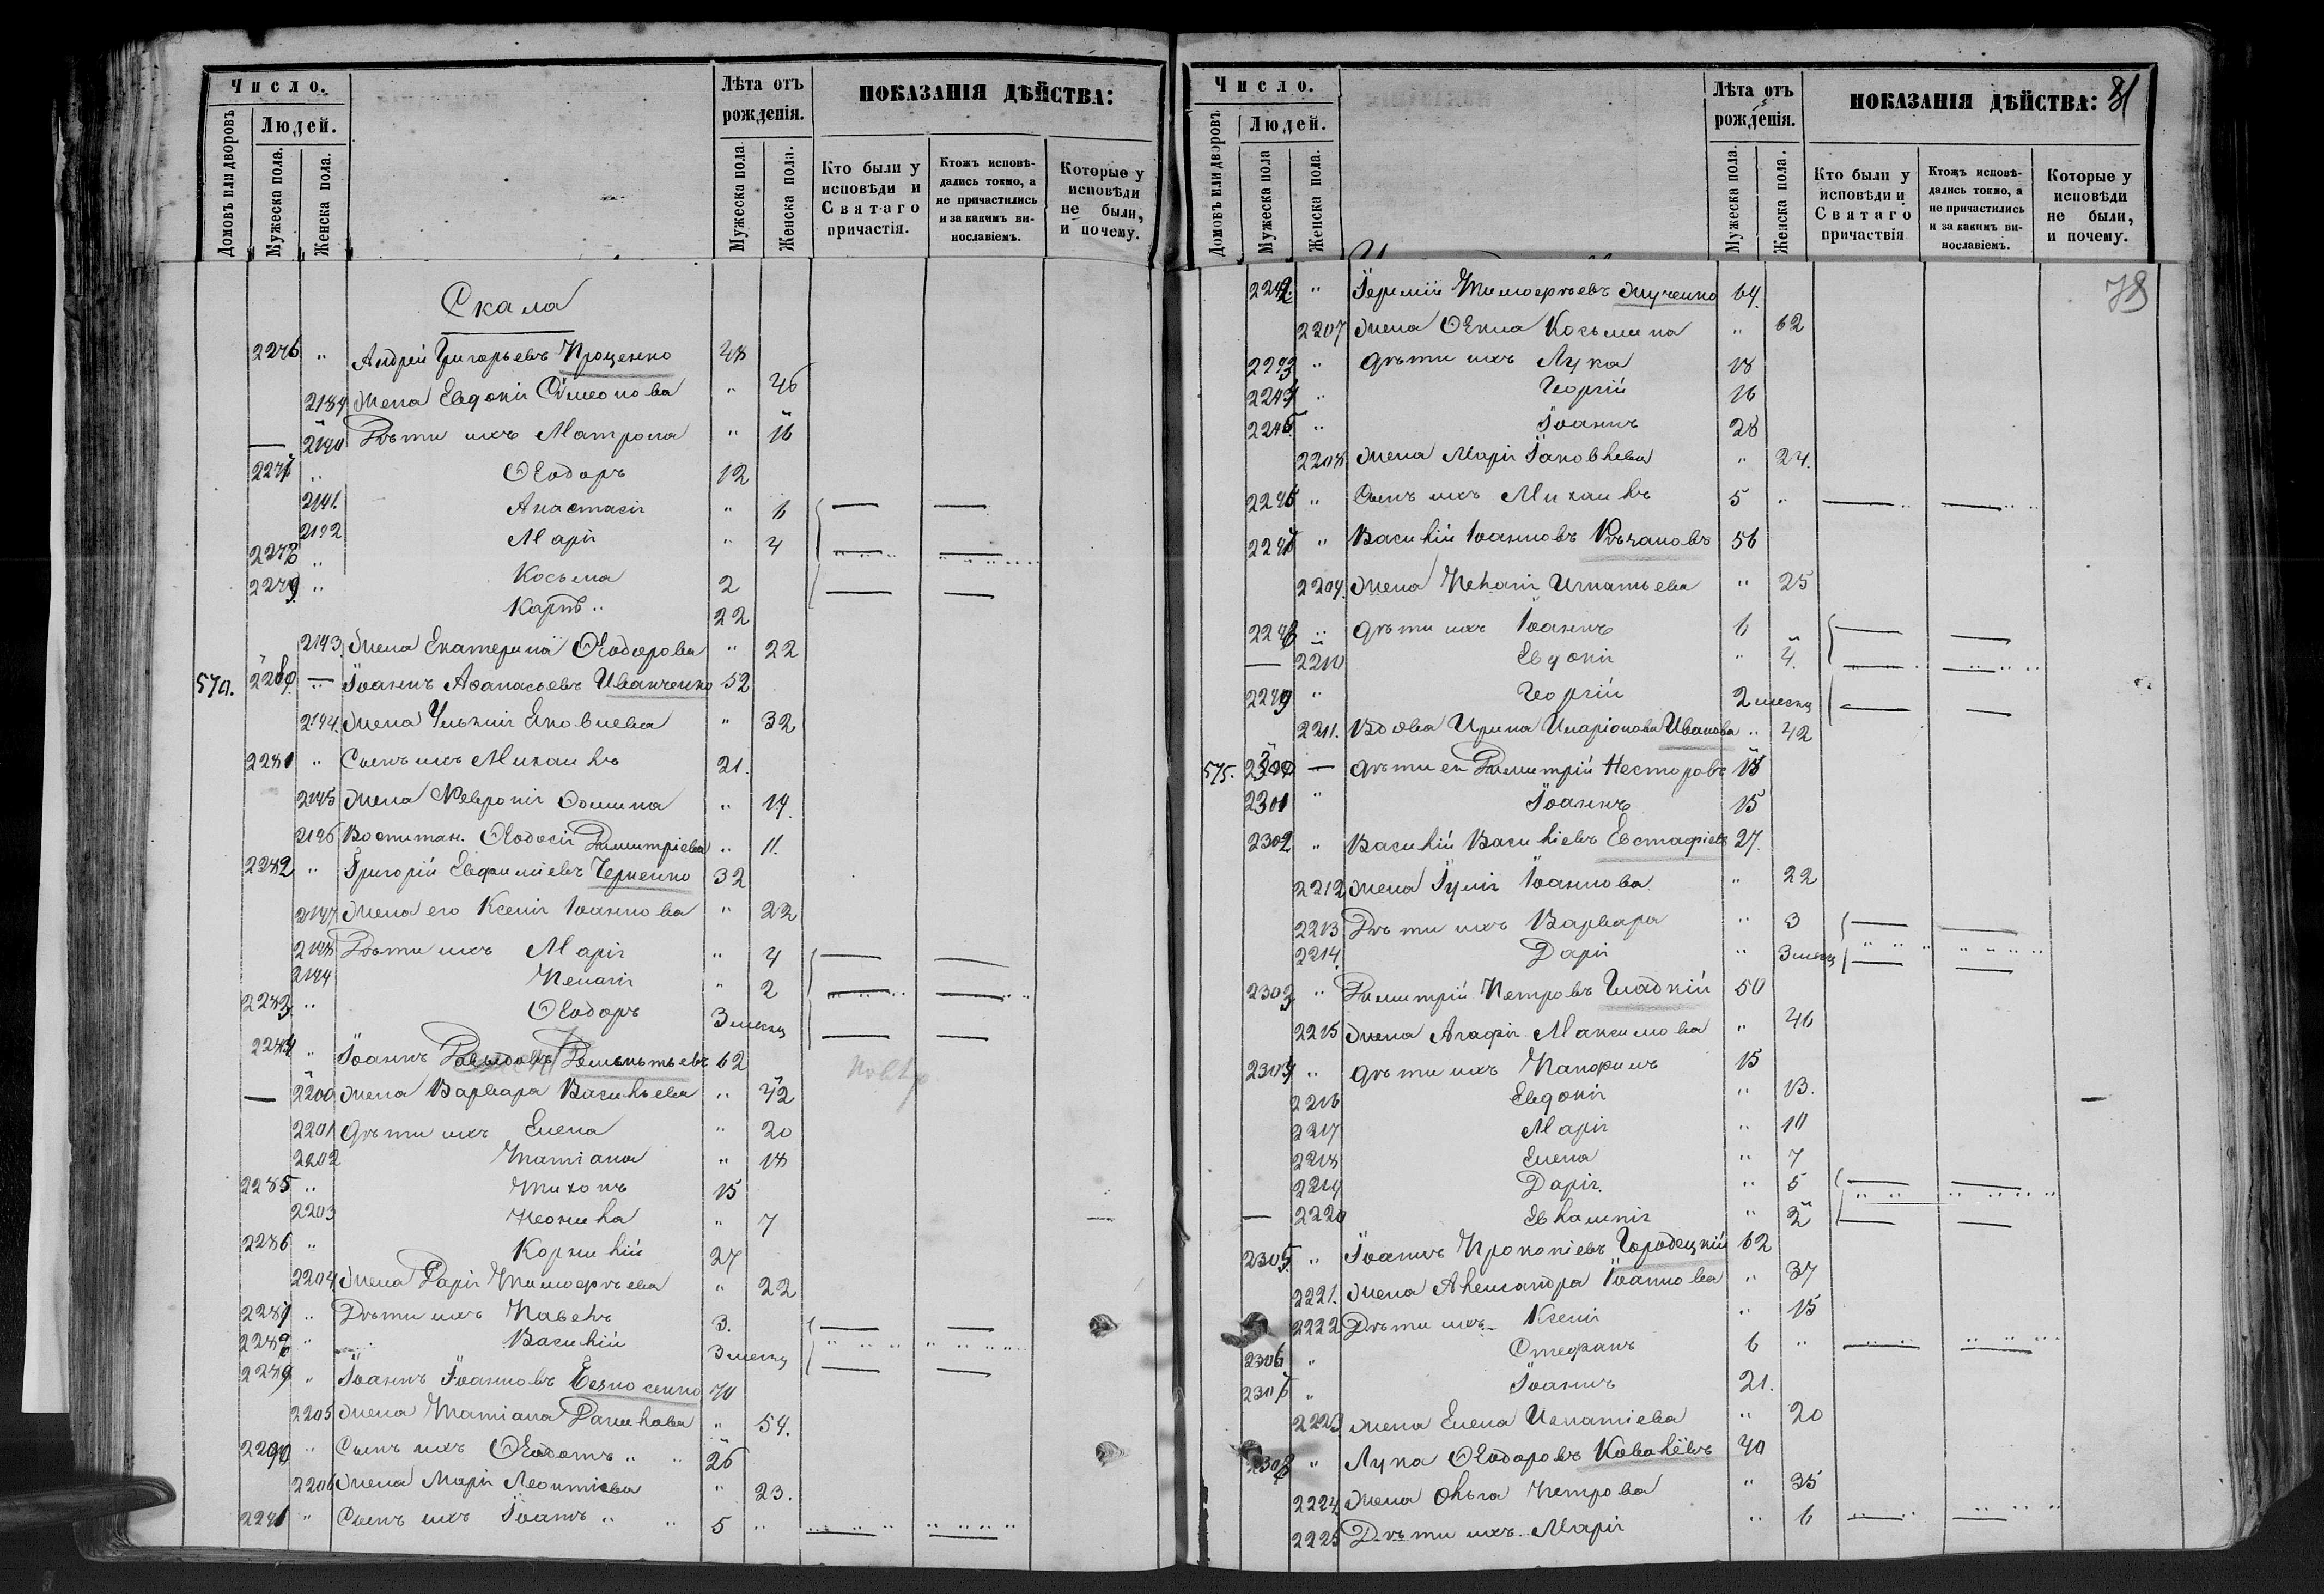 Число.
Домовъ или дворовъ
Людей.
Мужеска пола.
Женска пола.
Лѣта отъ рожденія.
Мужеска пола.
Женска пола.
ПОКАЗАНІЯ ДѢЙСТВА:
Кто были у исповѣди и Святаго причастія.
Ктожъ исповѣдались токмо, а не причастились и за какимъ винославіемъ.
Которые у исповѣди не были, и почему.
Скала
2276 " Андрей Григорьевъ Проценко 48
2189 Жена Евдокія Симеонова " 46
— 2190 Дѣти ихъ Матрона " 16
2277 " Ѳеодоръ 12
2191. Анастасія " 6
2192 Марія " 4
2278 " Косьма 2
2279 " Карпъ 22
2193. Жена Екатерина Ѳеодорова " 22
570. 2280. — Іоаннъ Аѳанасьевъ Иванченко 52
2194. Жена Ульянія Яковлева " 32
2281 " Сынъ ихъ Михаилъ 21.
2195 Жена Февронія Ѳомина " 19.
2196 Воспитан. Ѳеодосія Димитріева " 11.
2282 " Григорій Евфиміевъ Черненко 32
2197 Жена его Ксенія Іоаннова " 22
2198 Дѣти ихъ Марія " 4
2199 Пелагія " 2
2283 " Ѳеодоръ 3 месяц
2284 " Іоаннъ 62
— 2200 Жена Варвара Васильева " 42
2201 Дѣти ихъ Елена " 20
2202 Татіана " 18
2285 " Тихонъ 15
2203 Неонила " 7
2286 " Корнилій 27
2204 Жена Дарія Тимоѳѣева " 22
2287 " Дѣти ихъ Павелъ 3.
2288 " Василій 3 месяц
2289 " Іоаннъ Іоанновъ 70
2205 Жена Татіана Данилова " 54.
2290 " Сынъ ихъ Ѳеодотъ " " 26
2206 Жена Марія Леонтіева " 23.
2291 " Сынъ ихъ Іоаннъ " " 5 "
Число.
Домовъ или дворовъ
Людей.
Мужеска пола
Женска пола.
Лѣта отъ рожденія.
Мужеска пола.
Женска пола.
ПОКАЗАНІЯ ДѢЙСТВА: 81
Кто были у исповѣди и Святаго причастія
Ктожъ исповѣдались токмо, а не причастились и за какимъ винославіемъ.
Которые у исповѣди не были, и почему.
78
2292. " Іеремій Тимоѳѣевъ Жученко 64.
2207 Жена Ѳекла Косьмина " 62
2293 " Дѣти ихъ Лука 18
2294 " Георгій 16
2295. " Іоаннъ 28
2208 Жена Марія Іаковлева " 24.
2296 " Сынъ ихъ Михаилъ 5 "
2297 " Василій Іоанновъ Рѣзановъ 56
2209. Жена Пелагія Игнатьева " 25
2298 " Дѣти ихъ Іоаннъ 6
— 2210 Евдокія " 4.
2299 " Георгій 2 месяц
2211. Вдова Ирина Иларіонова Иванова " 42
575. 2300 — Дѣти ея Димитрій Несторовъ 18
2301 " Іоаннъ 15
2302 " Василій Васильевъ Евстафіевъ 27.
2212 Жена Іулія Іоаннова " 22
2213 Дѣти ихъ Варвара " 3
2214 Дарія " 3 месяц
2303 " Димитрій Петровъ Гладкій 50
2215 Жена Агафія Максимова " 46
2304 " Дѣти ихъ Панфилъ 15
2216 Евдокія " 13.
2217 Марія " 10
2218 Елена " 7
2219 Дарія. " 5
— 2220 Евлампія " 2
2305. " Іоаннъ Прокопіевъ Городецкій 62
2221. Жена Александра Іоаннова " 37
2222 Дѣти ихъ Ксенія " 15
2306 " Стефанъ 6 "
2307 " Іоаннъ 21.
2223 Жена Елена Игнатіева " 20
2308 " Лука Ѳеодоровъ Ковалёвъ 40
2224 Жена Ольга Петрова " 35
2225 Дѣти ихъ Марія " 6